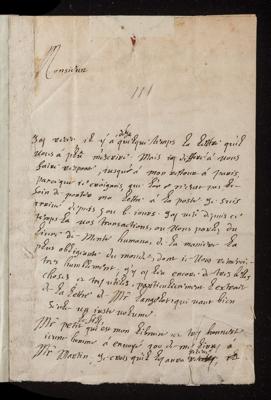 Monsieur
111
J'ay receu il y a desja quelque temps la lettre qu'il
vous a pleu m'escrire. Mais j'ay differé à vous
faire response, jusque à mon retour à paris,
parce que je craignois, que l'on n'eust pas le
soin de porter ma lettre à la poste. Je suis
arrivé depuis 5 ou 6 jours. J'ay veu depuis ce
temps la vos transactions, ou vous parlez du
livre de Mente humana, de la maniere la
plus obligeante du monde, dont je vous remercie
tres humblement. J'y ay leu encore de tres belles
choses et tres utiles, particulierement l'extrait
de la lettre de Mr Langelot qui vaut bien
seule un juste volume.
Mr petit qui est mon libraire et tres honneste
homme a envoyé de mes livres à
Mr Martin, Je crois qu'il les aura